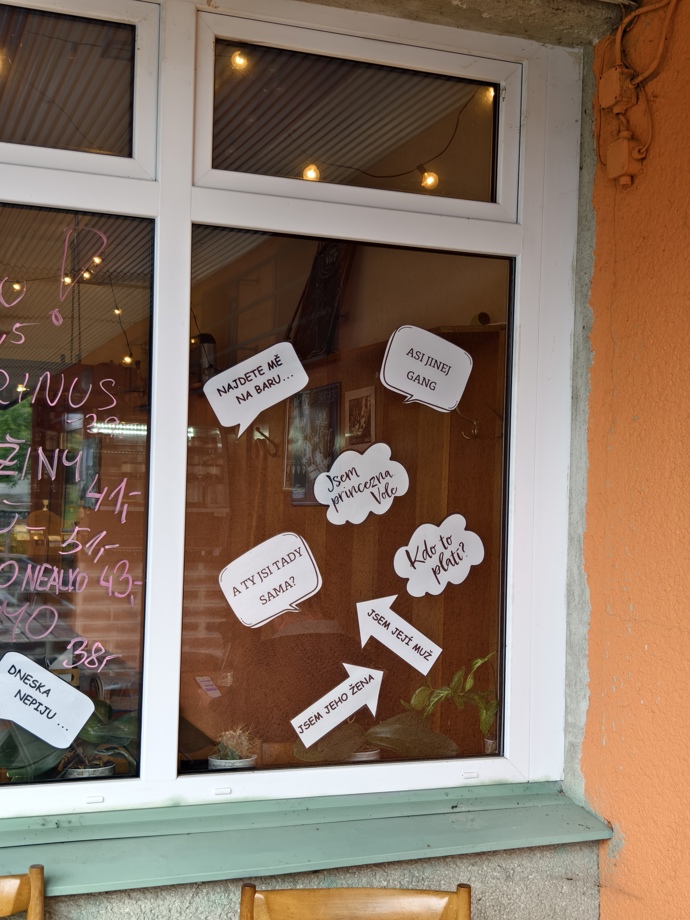 ,5
RINUS
ŽINY 41,-
51,-
NEALKO 43,-
38,-
DNESKA
NEPIJU ...
NAJDETE MĚ
NA BARU...
ASI JINEJ
GANG
Jsem
princezna
Vole
A TY JSI TADY
SAMA?
Kdo to
platí?
JSEM JEJÍ MUŽ
JSEM JEHO ŽENA